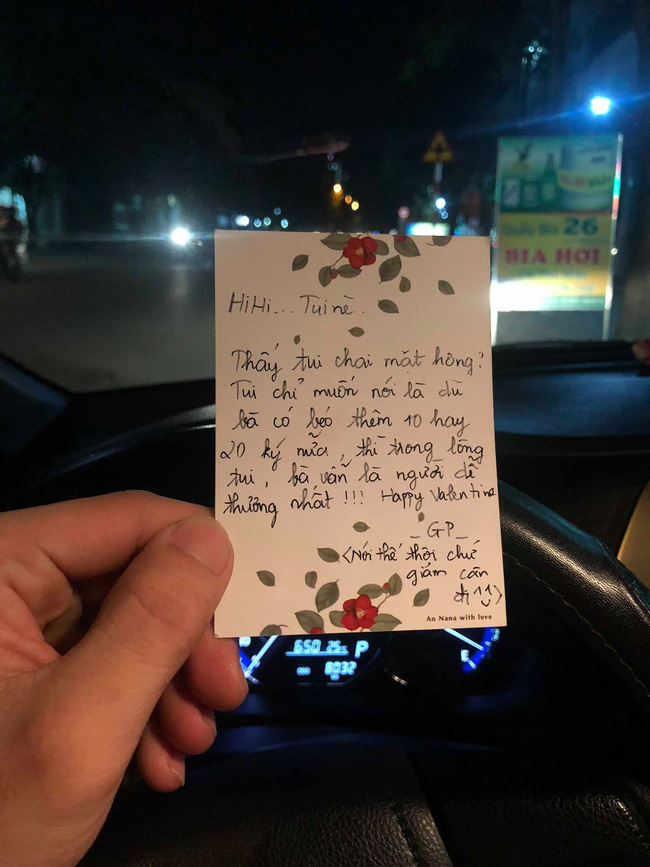 HiHi... Tui nè.
Thấy tui chai mặt hông?
Tui chỉ muốn nói là dù
bà có béo thêm 10 hay
20 ký nữa, thì trong lòng
tui, bà vẫn là người dễ
thương nhất !!! Happy Valentine
_GP_
<Nói thế thôi chứ
giảm cân
đi ^^>
An Nana with love
Quầy Bia 26
BIA HƠI
650 25°C P
8032
E